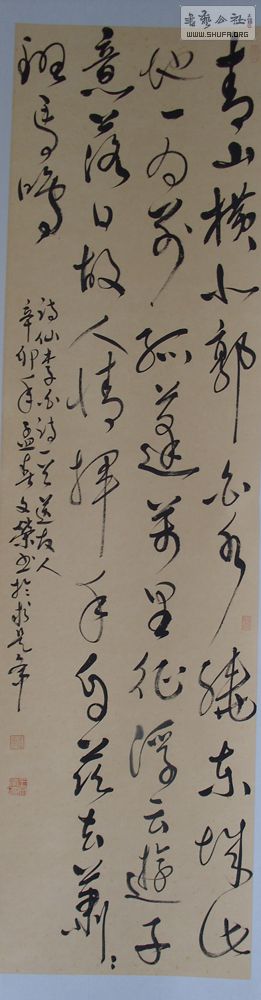 青山横北郭白水绕东城此
地一为别孤蓬万里征浮云游子
意落日故人情挥手自兹去萧〻
班马鸣
诗仙李白诗一首送友人
辛卯年孟春文荣书於求是斋
書法公社
WWW.SHUFA.ORG